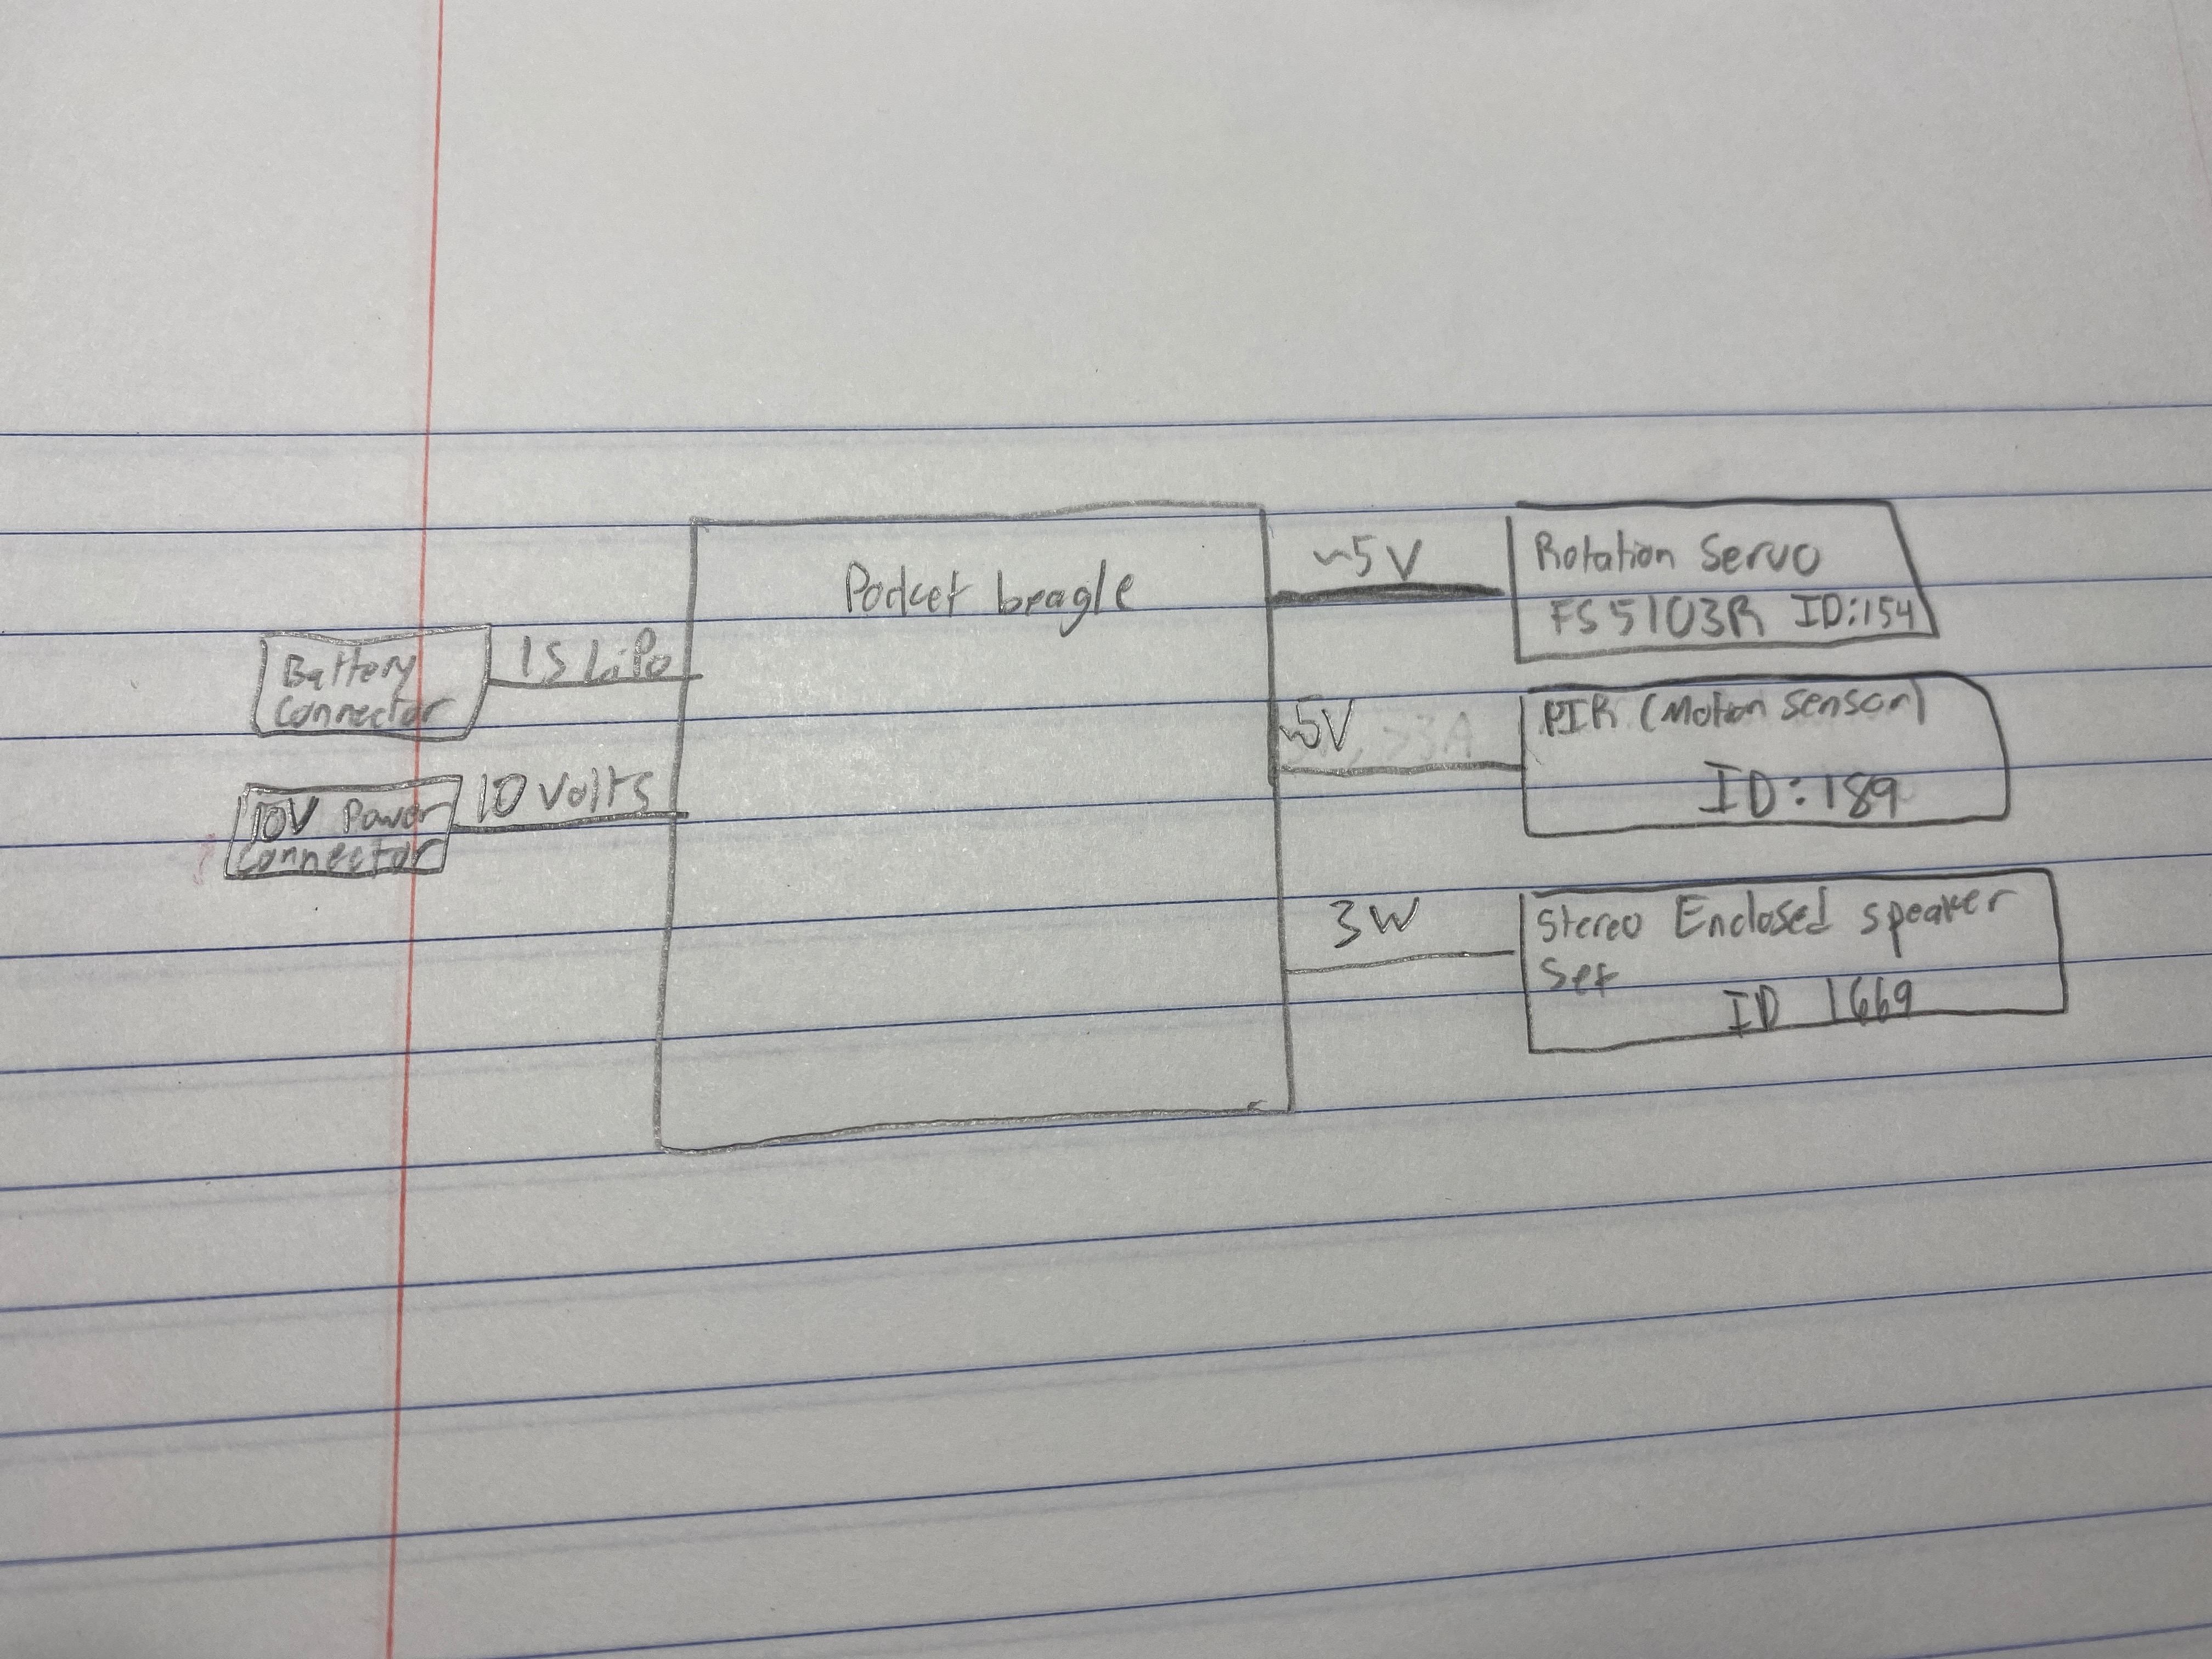 Pocket beagle
Battery
Connector
1S LiPo
10V Power
Connector
10 Volts
~5V
Rotation Servo
FS5103R ID:154
~5V
>3A
PIR (Motion Sensor)
ID:189
3W
Stereo Enclosed speaker
Set
ID 1669